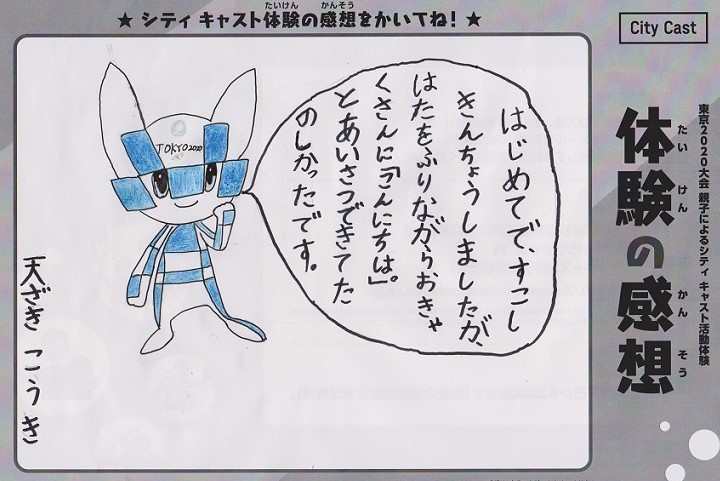 ★ シティ キャスト体験の感想をかいてね! ★
たいけん
かんそう
City Cast
東京2020大会 親子によるシティ キャスト活動体験
体験の感想
たい けん
かん そう
はじめてで、すこし
きんちょうしましたが、
はたをふりながらおきゃ
くさんに「こんにちは。」
とあいさつできてた
のしかったです。
TOKYO 2020
天ざき こうき